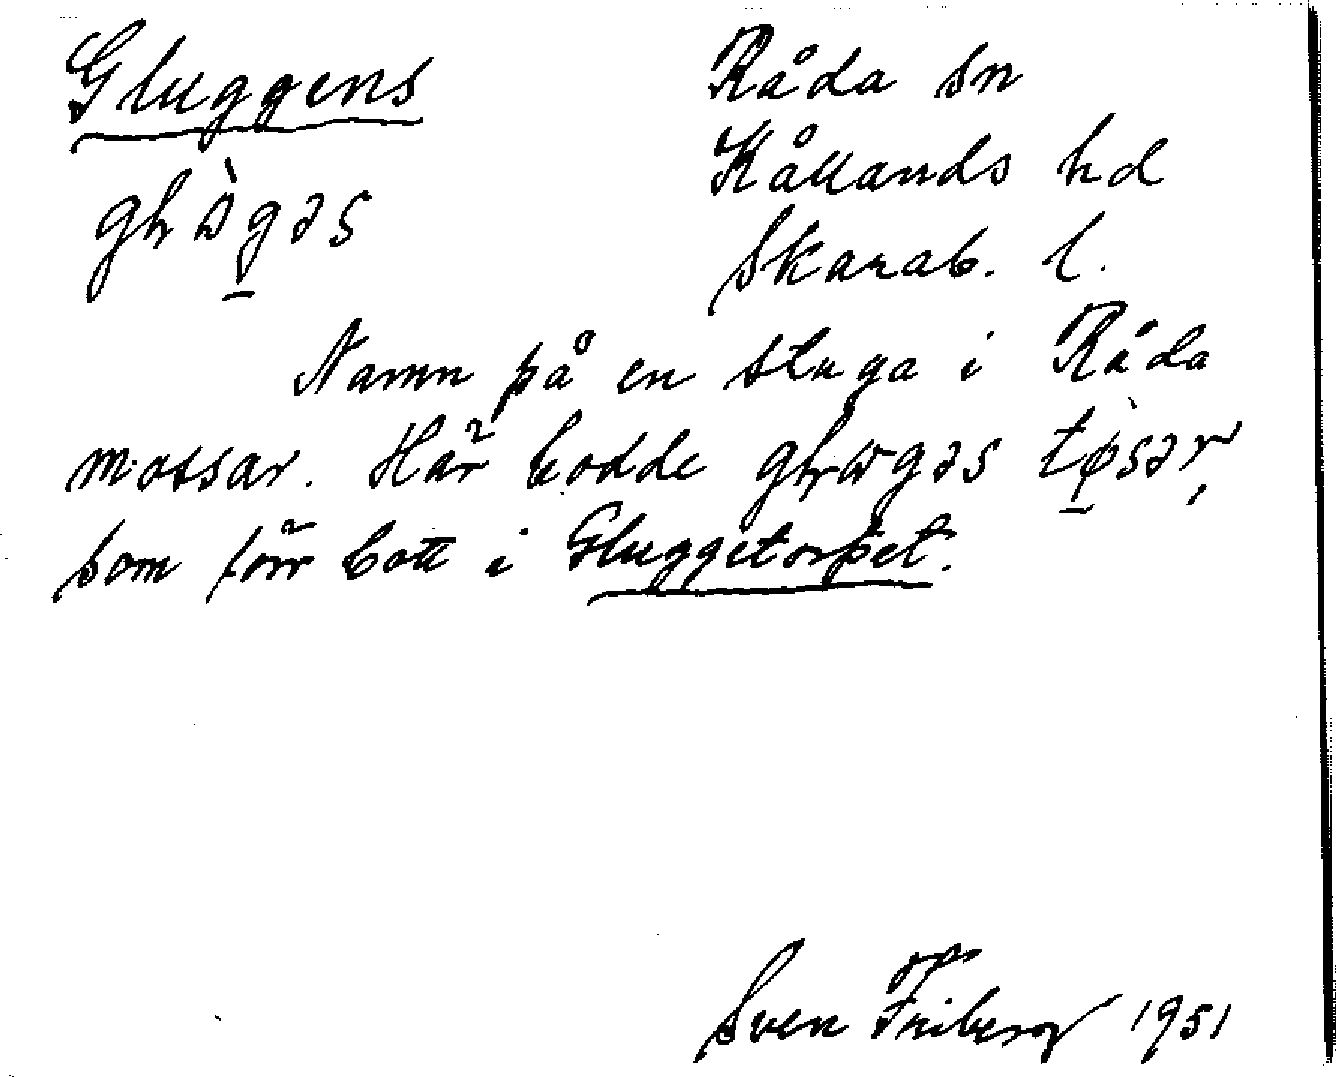 Gluggens
Råda sn
Kållands hd
Skarab. l.
Namn på en stuga i Råda
mossar. Här bodde
som förr bott i Gluggetorpet.
Sven Friberg 1951